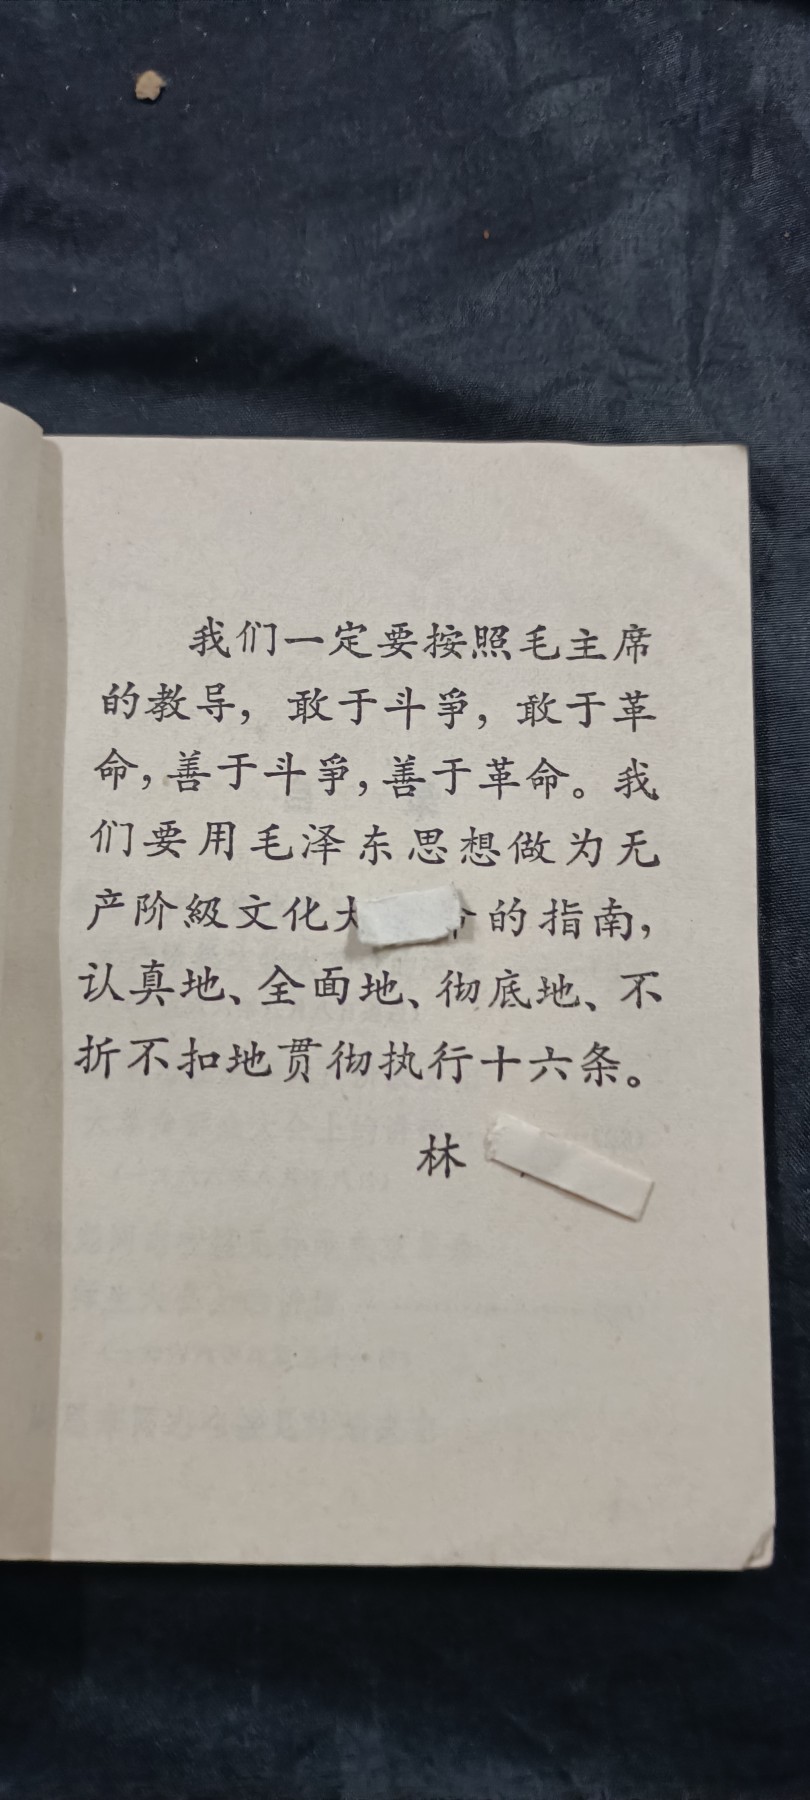 我们一定要按照毛主席
的教导，敢于斗爭，敢于革
命，善于斗爭，善于革命。我
们要用毛泽东思想做为无
产阶級文化大 的指南，
认真地、全面地、彻底地、不
折不扣地贯彻执行十六条。
林